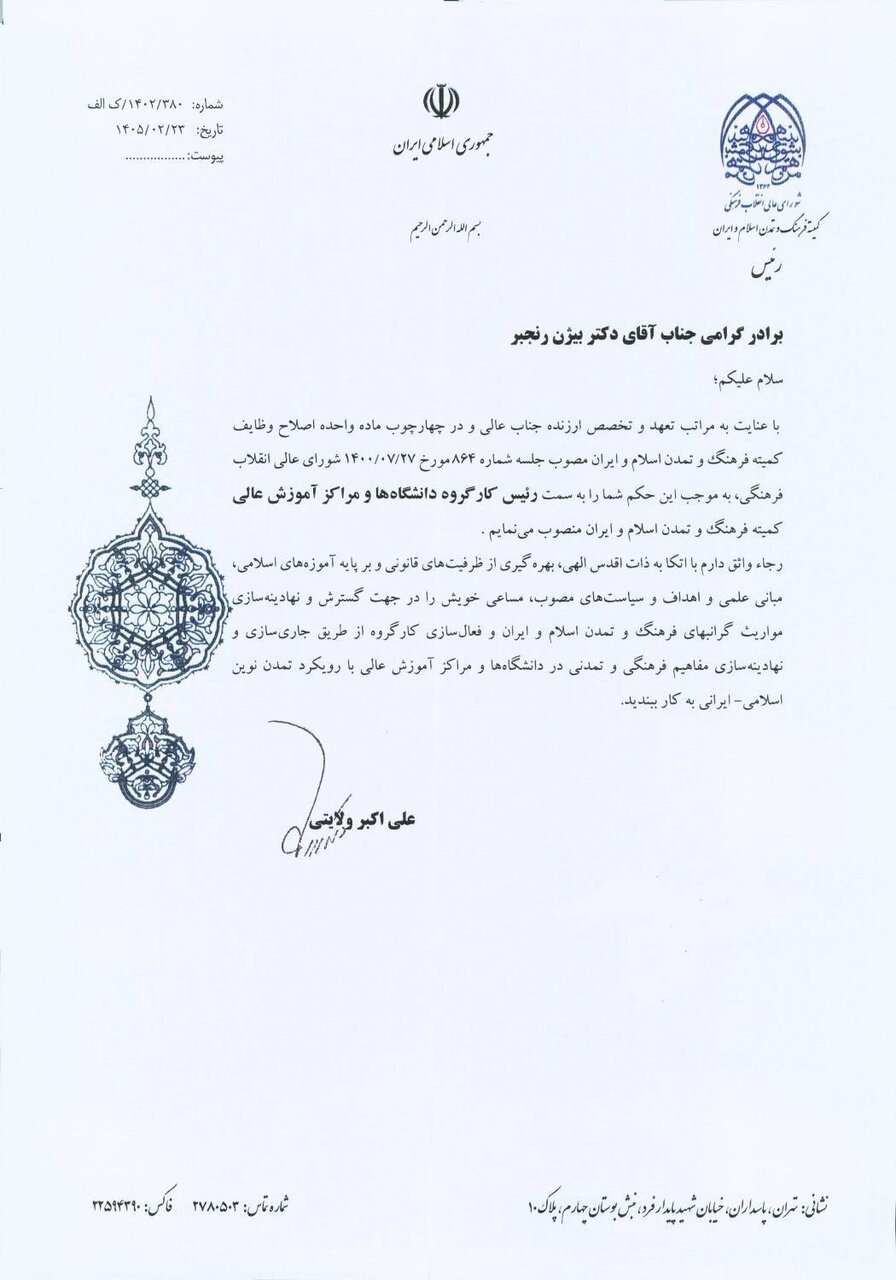 شماره: ۱۴۰۲/۳۸۰/ک الف
تاریخ: ۱۴۰۵/۰۲/۲۳
پیوست:.................
جمهوری اسلامی ایران
بسم الله الرحمن الرحیم
۱۳۶۳
شورای عالی انقلاب فرهنگی
کمیته فرهنگ و تمدن اسلام و ایران
رئیس
برادر گرامی جناب آقای دکتر بیژن رنجبر
سلام علیکم؛
با عنایت به مراتب تعهد و تخصص ارزنده جناب عالی و در چهارچوب ماده واحده اصلاح وظایف
کمیته فرهنگ و تمدن اسلام و ایران مصوب جلسه شماره ۸۶۴مورخ ۱۴۰۰/۰۷/۲۷ شورای عالی انقلاب
فرهنگی، به موجب این حکم شما را به سمت رئیس کارگروه دانشگاه‌ها و مراکز آموزش عالی
کمیته فرهنگ و تمدن اسلام و ایران منصوب می‌نمایم .
رجاء واثق دارم با اتکا به ذات اقدس الهی، بهره‌گیری از ظرفیت‌های قانونی و بر پایه آموزه‌های اسلامی،
مبانی علمی و اهداف و سیاست‌های مصوب، مساعی خویش را در جهت گسترش و نهادینه‌سازی
مواریث گرانبهای فرهنگ و تمدن اسلام و ایران و فعال‌سازی کارگروه از طریق جاری‌سازی و
نهادینه‌سازی مفاهیم فرهنگی و تمدنی در دانشگاه‌ها و مراکز آموزش عالی با رویکرد تمدن نوین
اسلامی- ایرانی به کار ببندید.
علی اکبر ولایتی
نشانی: تهران، پاسداران، خیابان شهید پایدارفرد، نبش بوستان چهارم، پلاک ۱۰
شماره تماس: ۲۷۸۰۵۰۳ فاکس: ۲۲۵۹۴۳۹۰